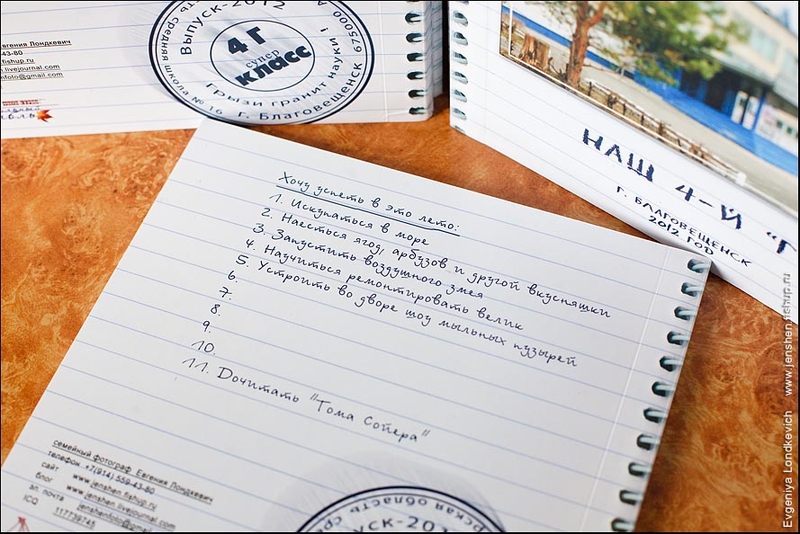 Выпуск-2012
4 Г
супер
класс
Грызи гранит науки!
средняя школа № 16 г. Благовещенск 675000
Евгения Лондкевич
-43-80
.fishup.ru
.livejournal.com
nfoto@gmail.com
НАШ 4-Й "Г
Г. БЛАГОВЕЩЕНСК
2012 ГОД
Хочу успеть в это лето:
1. Искупаться в море
2. Наесться ягод, арбузов и другой вкусняшки
3. Запустить воздушного змея
4. Научиться ремонтировать велик
5. Устроить во дворе шоу мыльных пузырей
6.
7.
8.
9.
10.
11. Дочитать "Тома Сойера"
семейный фотограф Евгения Лондкевич
телефон +7(914) 559-43-80
сайт www.jenshen.fishup.ru
блог www.jenshen.livejournal.com
эл. почта jenshenfoto@gmail.com
ICQ 117739745
рская область средн
Выпуск-2012
Evgeniya Londkevich www.jenshen.fishup.ru